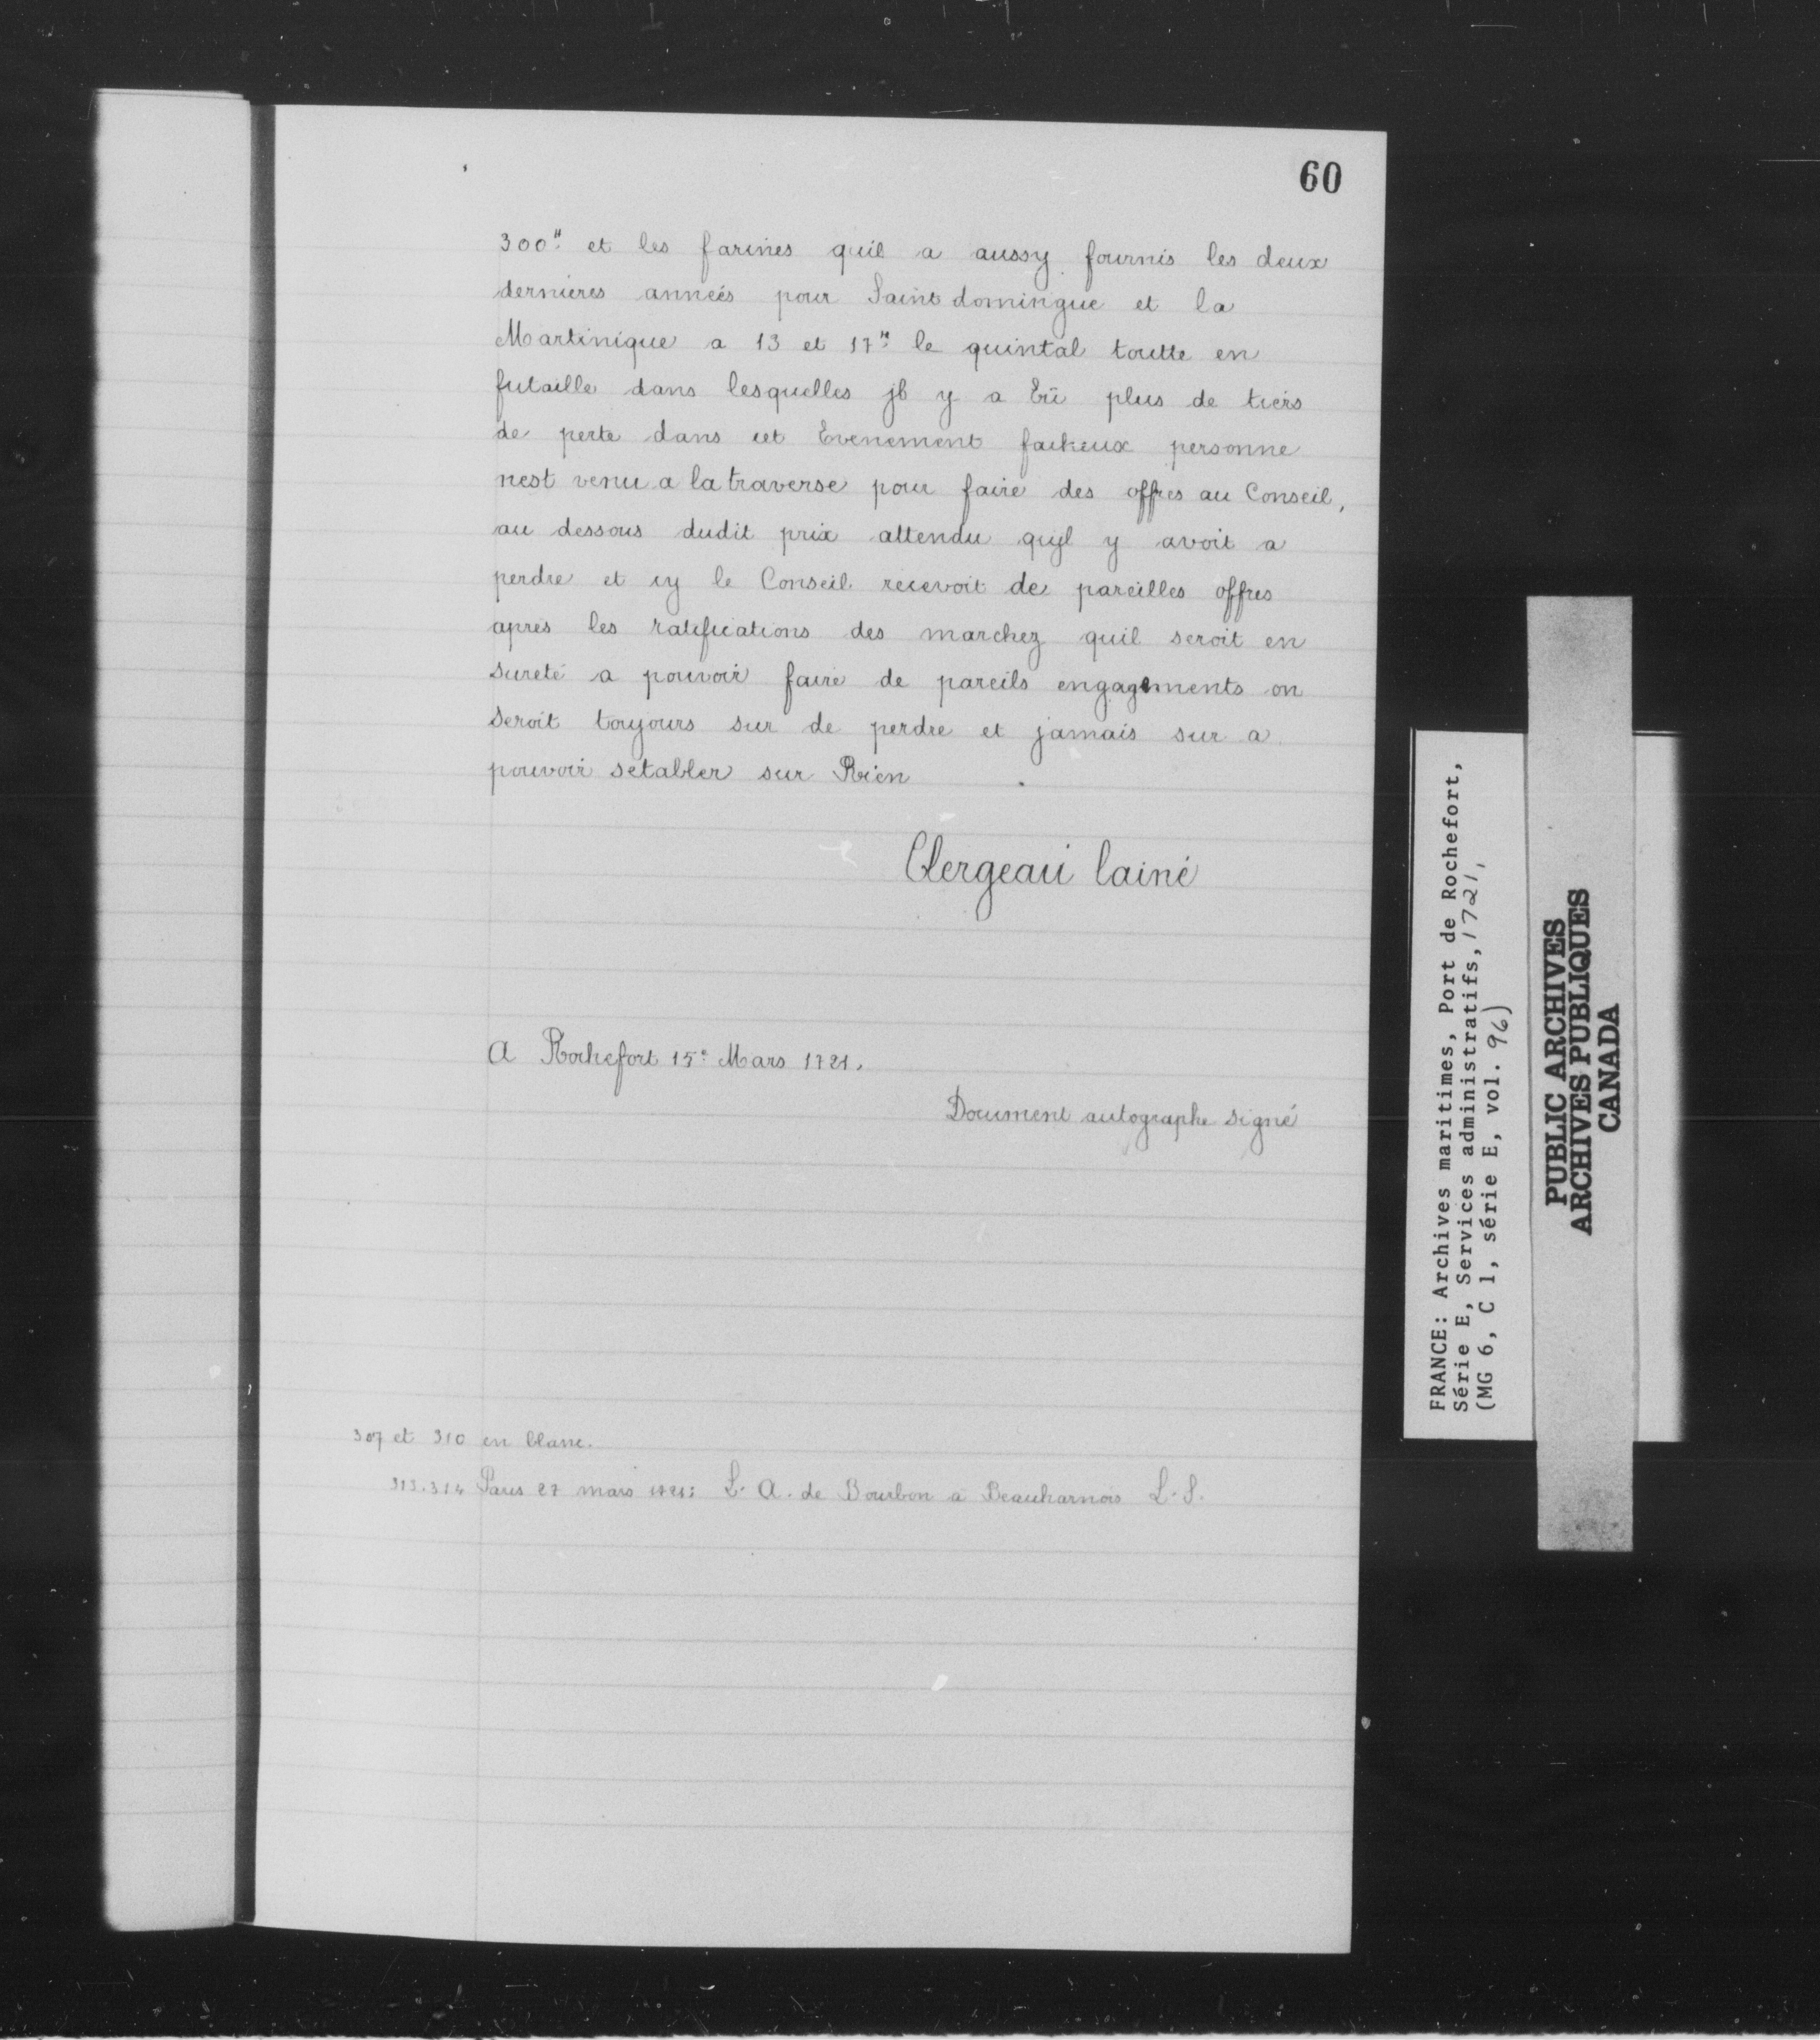 60
300ʰ et les farines quil a aussy fournis les deux
dernieres années pour Saint domingue et la
Martinique a 13 et 17ʰ le quintal toutte en
futaille dans lesquelles jl y a Eü plus de tiers
de perte dans cet Evenement facheux personne
nest venu a la traverse pour faire des offres au Conseil,
au dessous dudit prix attendu qujl y avoit a
perdre et cy le Conseil recevoit de pareilles offres
apres les ratifications des marchez quil seroit en
sureté a pouvoir faire de pareils engagements on
seroit toujours sur de perdre et jamais sur a
pouvoir setabler sur Rien
Clergeau lainé
A Rochefort 15e Mars 1721.
Document autographe signé
307 et 310 en blanc.
313.314 Paris 27 mars 1721: L. A. de Bourbon a Beauharnois L.S.
FRANCE: Archives maritimes, Port de Rochefort,
Série E, Services administratifs, 1721,
(MG 6, C 1, série E, vol. 96)
PUBLIC ARCHIVES
ARCHIVES PUBLIQUES
CANADA